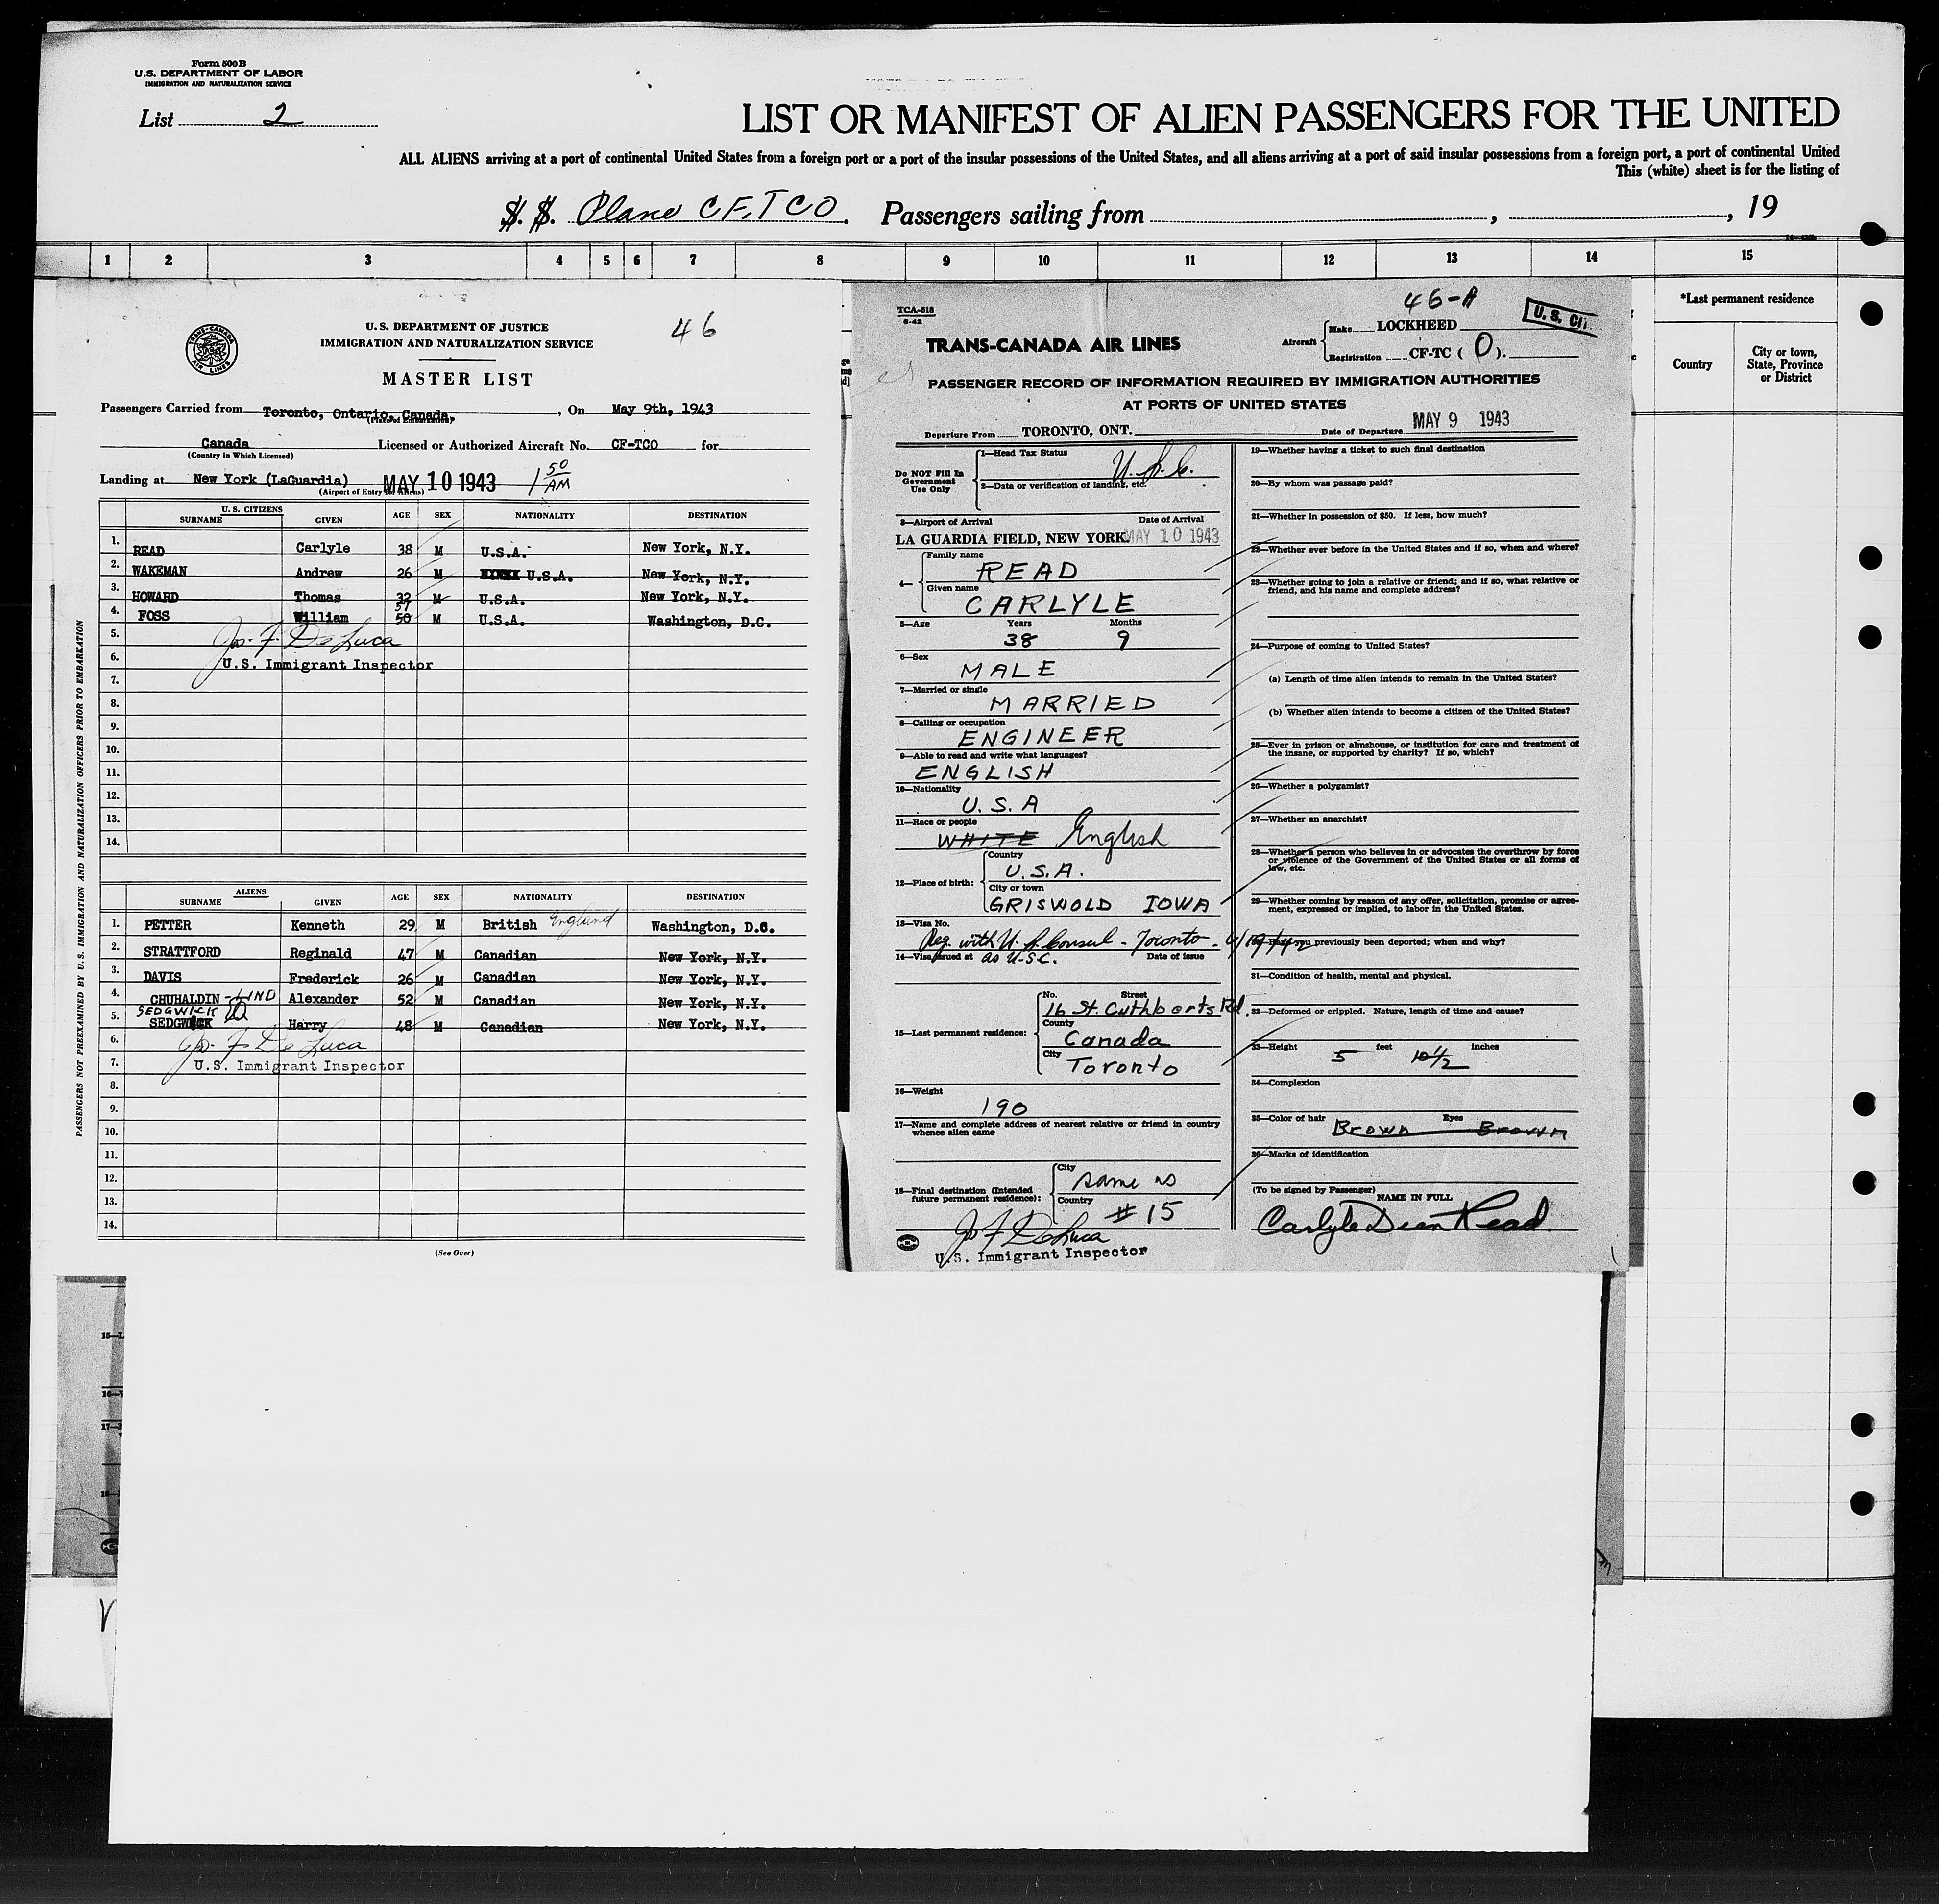 Form 500 B
U.S. DEPARTMENT OF LABOR
IMMIGRATION AND NATURALIZATION SERVICE
List 2
LIST OR MANIFEST OF ALIEN PASSENGERS FOR THE UNITED
ALL ALIENS arriving at a port of continental United States from a foreign port or a port of the insular possessions of the United States, and all aliens arriving at a port of said insular possessions from a foreign port, a port of continental United
This (white) sheet is for the listing of
S. S. Plane CF,TCO. Passengers sailing from , , 19
1 2 3 4 5 6 7 8 9 10 11 12 13 14 15
*Last permanent residence
Country
City or town, State, Province or District
TRANS-CANADA AIR LINES
U. S. DEPARTMENT OF JUSTICE
IMMIGRATION AND NATURALIZATION SERVICE
46
MASTER LIST
Passengers Carried from Toronto, Ontario, Canada, , On May 9th, 1943
(Place of Embarkation)
Canada Licensed or Authorized Aircraft No. CF-TCO for
(Country in Which Licensed)
Landing at New York (LaGuardia) MAY 10 1943 1 50 AM
(Airport of Entry for Aliens)
U. S. CITIZENS
SURNAME GIVEN AGE SEX NATIONALITY DESTINATION
1. READ Carlyle 38 M U.S.A. New York, N.Y.
2. WAKEMAN Andrew 26 M U.S.A. New York, N.Y.
3. HOWARD Thomas 32 M U.S.A. New York, N.Y.
4. FOSS William 57 50 M U.S.A. Washington, D.C.
5. Jos. F. De Luca
6. U.S. Immigrant Inspector
7.
8.
9.
10.
11.
12.
13.
14.
ALIENS
SURNAME GIVEN AGE SEX NATIONALITY DESTINATION
1. PETTER Kenneth 29 M British England Washington, D.C.
2. STRATTFORD Reginald 47 M Canadian New York, N.Y.
3. DAVIS Frederick 26 M Canadian New York, N.Y.
4. CHUHALDIN -LIND Alexander 52 M Canadian New York, N.Y.
SEDGWICK
5. SEDGWICK Harry 48 M Canadian New York, N.Y.
6. Jos. F De Luca
7. U.S. Immigrant Inspector
8.
9.
10.
11.
12.
13.
14.
(See Over)
PASSENGERS NOT PREEXAMINED BY U.S. IMMIGRATION AND NATURALIZATION OFFICERS PRIOR TO EMBARKATION
TCA-518
6-42
46-A
U. S. Cit.
TRANS-CANADA AIR LINES
Aircraft Make LOCKHEED
Registration CF-TC ( O ).
PASSENGER RECORD OF INFORMATION REQUIRED BY IMMIGRATION AUTHORITIES
AT PORTS OF UNITED STATES
Departure From TORONTO, ONT. Date of Departure MAY 9 1943
Do NOT Fill In Government Use Only
1—Head Tax Status U.S.C.
2—Data or verification of landing, etc.
3—Airport of Arrival Date of Arrival
LA GUARDIA FIELD, NEW YORK. MAY 10 1943
4— Family name
READ
Given name
CARLYLE
5—Age Years Months
38 9
6—Sex
MALE
7—Married or single
MARRIED
8—Calling or occupation
ENGINEER
9—Able to read and write what languages?
ENGLISH
10—Nationality
U.S.A
11—Race or people
WHITE English
12—Place of birth: Country
U.S.A.
City or town
GRISWOLD IOWA
13—Visa No.
Reg. with U.S. Consul - Toronto - 4/19/42
14—Visa issued at as U.S.C. Date of issue
15—Last permanent residence: No. Street
16 St. Cuthberts Rd.
County
Canada
City
Toronto
16—Weight
190
17—Name and complete address of nearest relative or friend in country whence alien came
18—Final destination (Intended future permanent residence): City
same as
Country
# 15
Jos F De Luca
U.S. Immigrant Inspector
19—Whether having a ticket to such final destination
20—By whom was passage paid?
21—Whether in possession of $50. If less, how much?
22—Whether ever before in the United States and if so, when and where?
23—Whether going to join a relative or friend; and if so, what relative or
friend, and his name and complete address?
24—Purpose of coming to United States?
(a) Length of time alien intends to remain in the United States?
(b) Whether alien intends to become a citizen of the United States?
25—Ever in prison or almshouse, or institution for care and treatment of
the insane, or supported by charity? If so, which?
26—Whether a polygamist?
27—Whether an anarchist?
28—Whether a person who believes in or advocates the overthrow by force
or violence of the Government of the United States or all forms of
law, etc.
29—Whether coming by reason of any offer, solicitation, promise or agree-
ment, expressed or implied, to labor in the United States.
30—Have you previously been deported; when and why?
31—Condition of health, mental and physical.
32—Deformed or crippled. Nature, length of time and cause?
33—Height 5 feet 10½ inches
34—Complexion
35—Color of hair Brown Eyes Brown
36—Marks of identification
(To be signed by Passenger) NAME IN FULL
Carlyle Dean Read